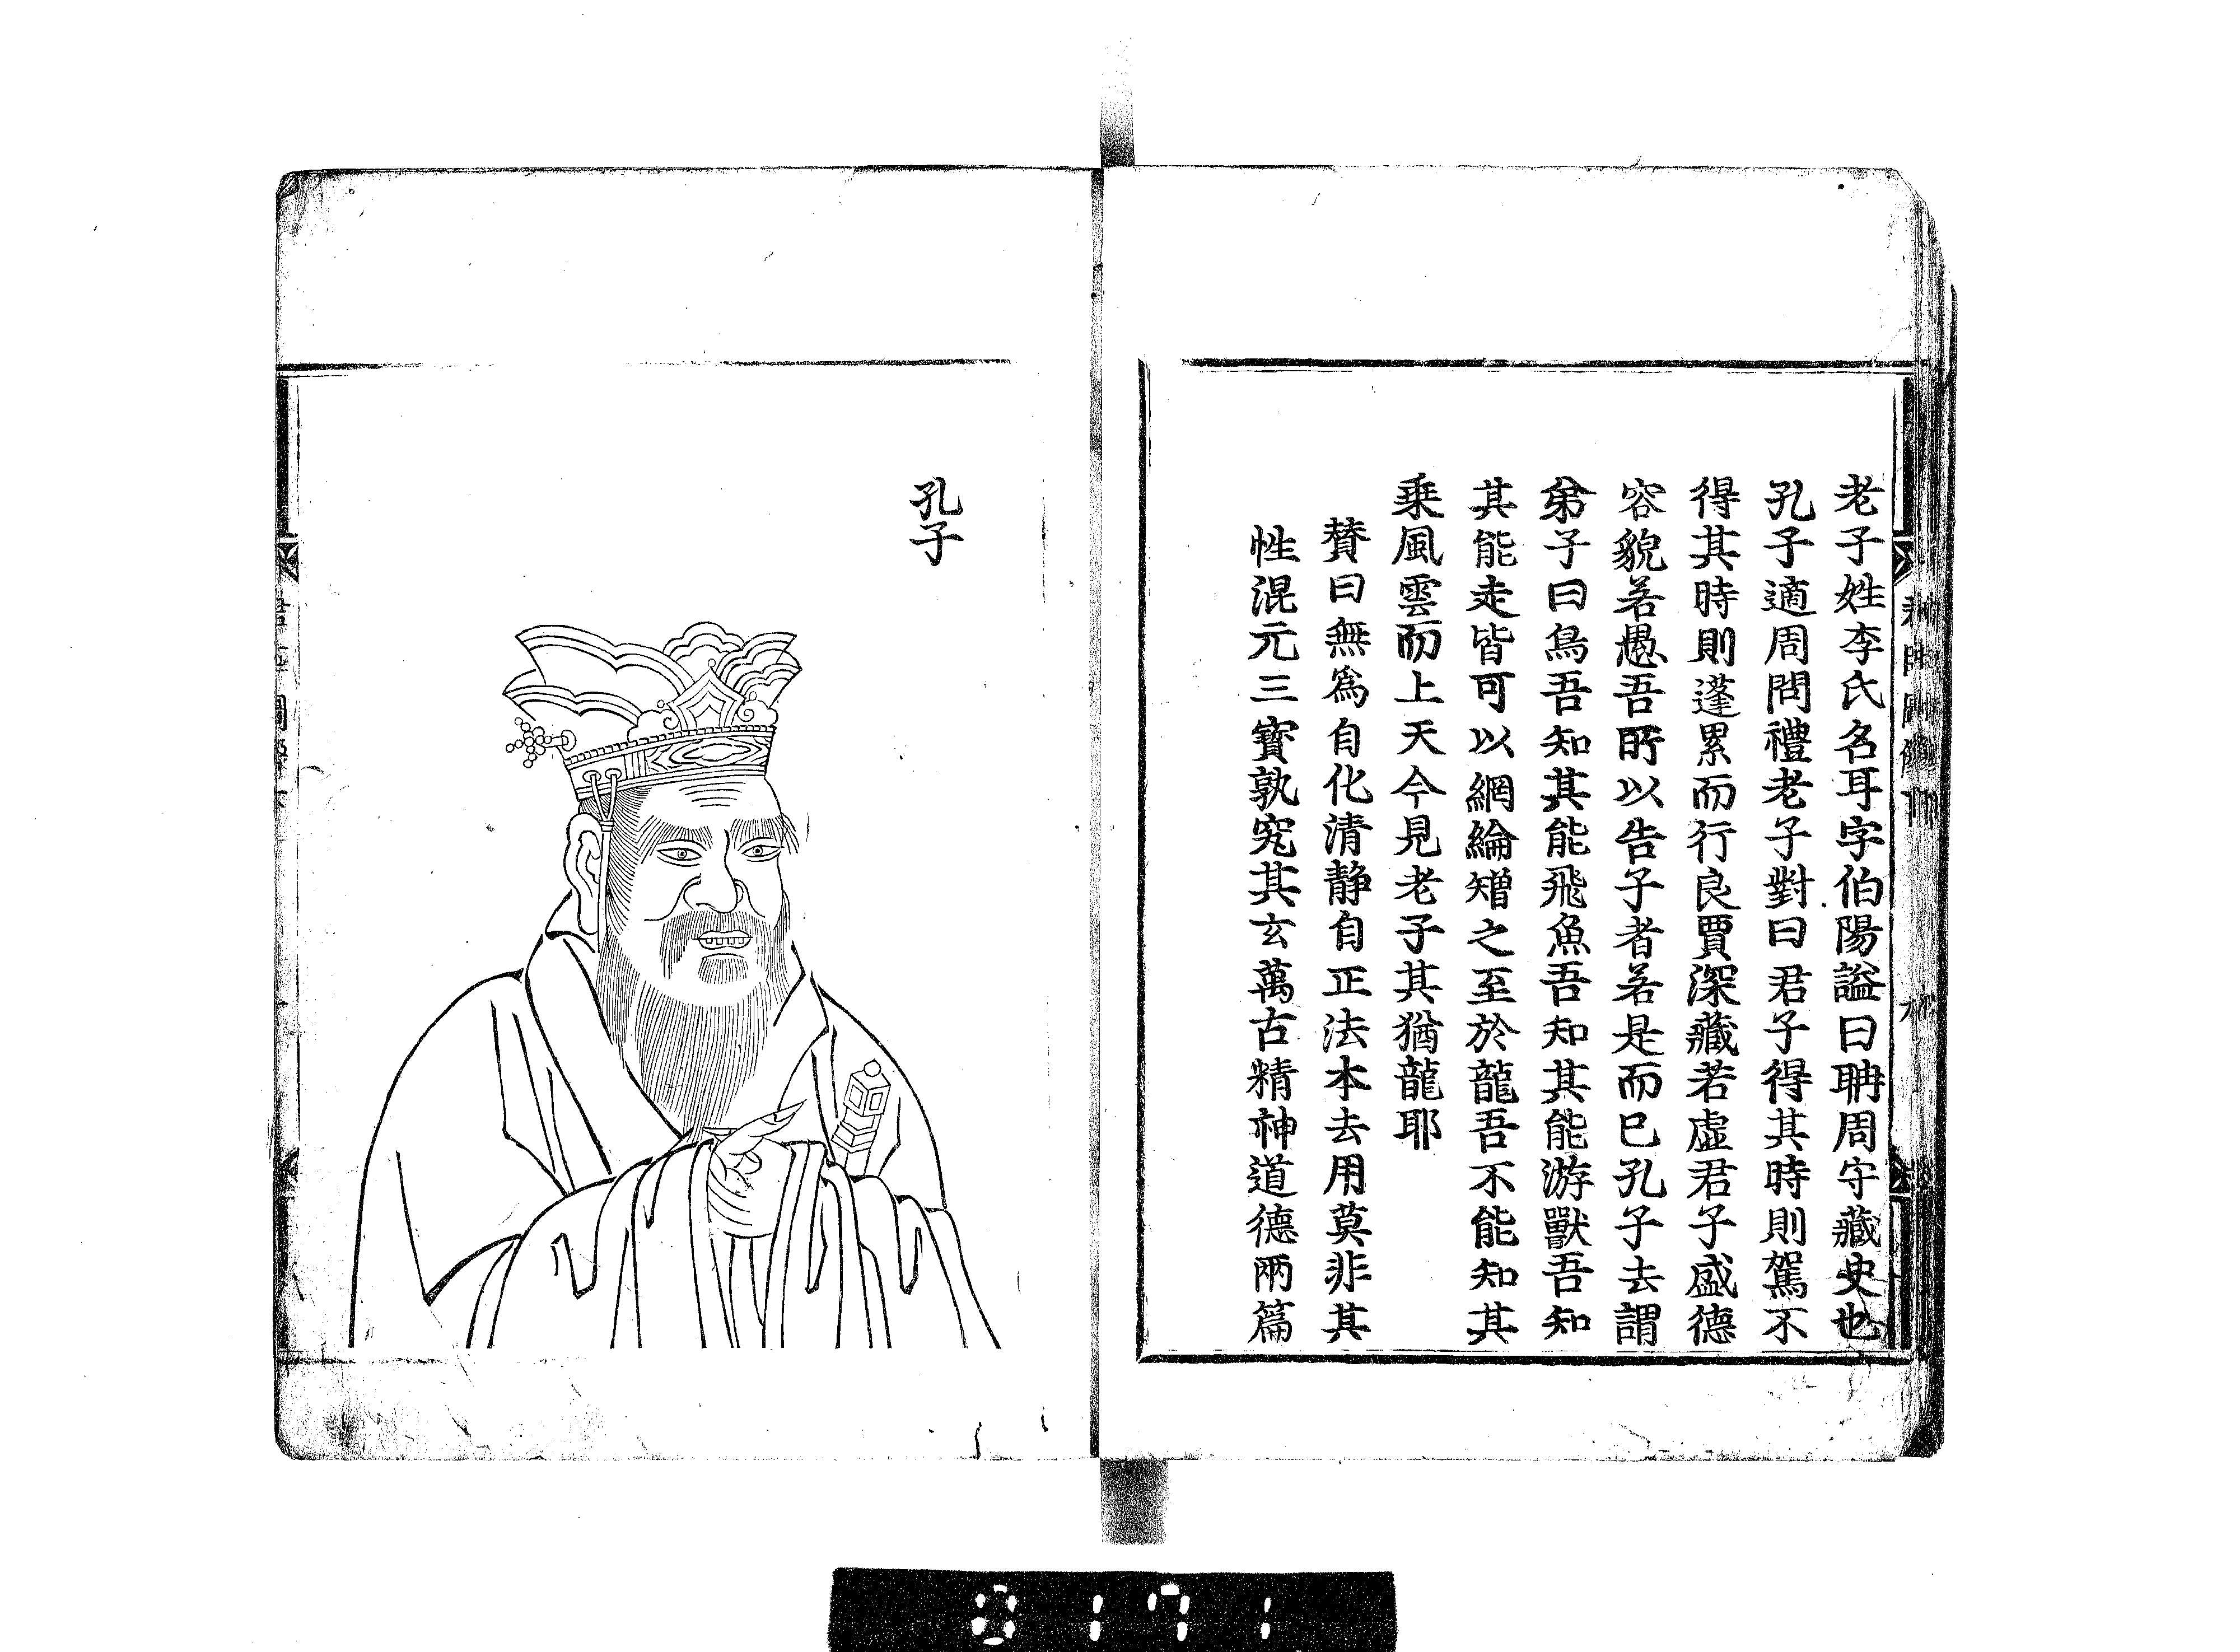 老子姓李氏名耳字伯陽謚曰聃周守藏史也
孔子適周問禮老子對曰君子得其時則駕不
得其時則蓬累而行良賈深藏若虛君子盛德
容貌若愚吾所以告子者若是而已孔子去謂
弟子曰鳥吾知其能飛魚吾知其能游獸吾知
其能走皆可以網綸矰之至於龍吾不能知其
乘風雲而上天今見老子其猶龍耶
贊曰無爲自化清静自正法本去用莫非其
性混元三寶孰究其玄萬古精神道德兩篇
孔子
0171